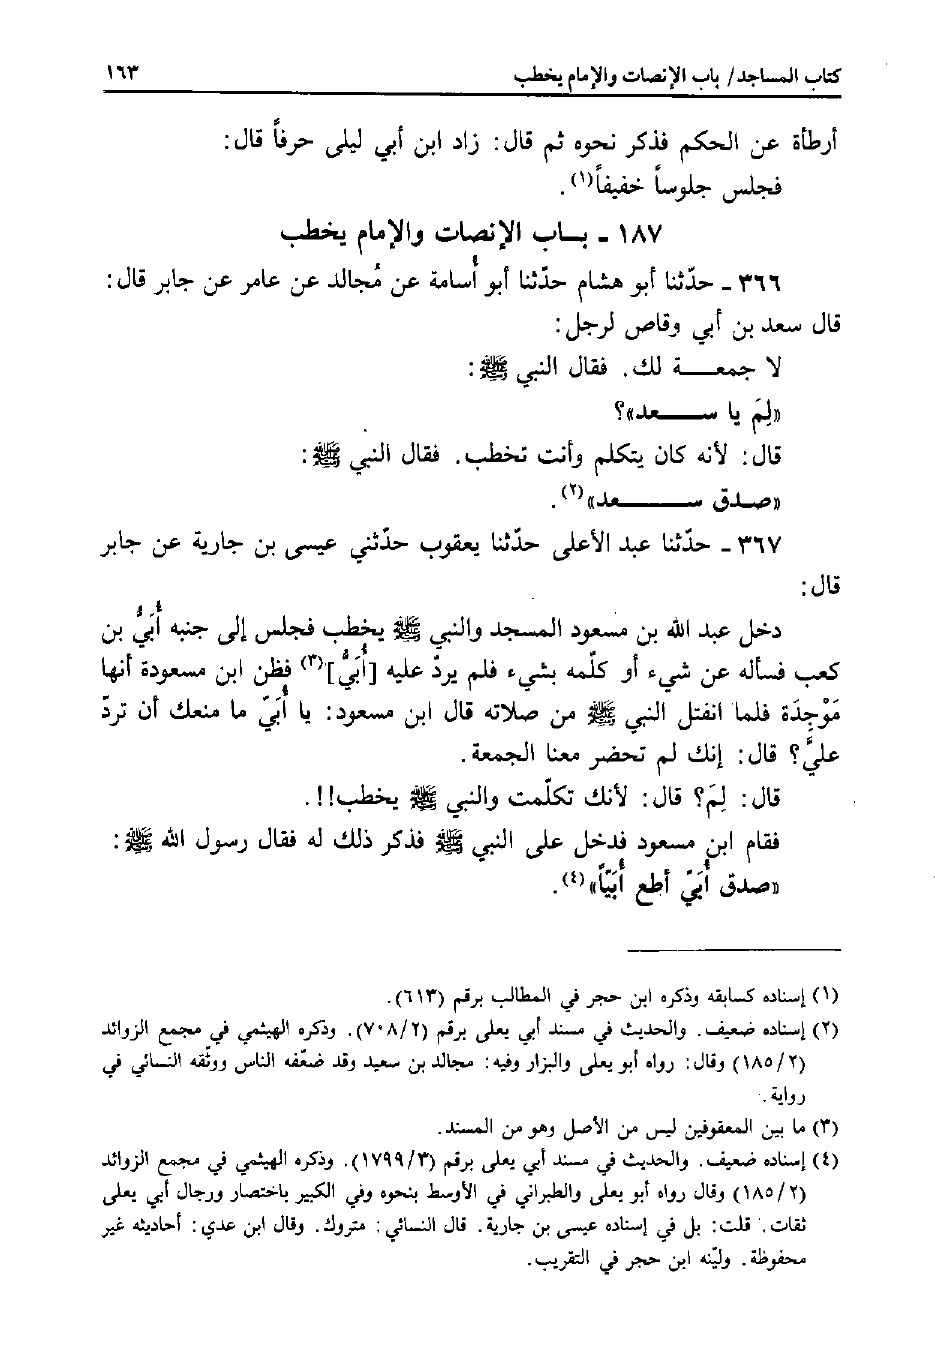 كتاب المساجد/ باب الإنصات والإمام يخطب ١٦٣
أرطأة عن الحكم فذكر نحوه ثم قال: زاد ابن أبي ليلى حرفاً قال:
فجلس جلوساً خفيفاً(١).
١٨٧ - بـاب الإنصات والإمام يخطب
٣٦٦ - حدّثنا أبو هشام حدّثنا أبو أُسامة عن مُجالد عن عامر عن جابر قال:
قال سعد بن أبي وقاص لرجل:
لا جمعـــة لك. فقال النبي ﷺ:
«لِمَ يا ســـعد»؟
قال: لأنه كان يتكلم وأنت تخطب. فقال النبي ﷺ:
«صـدق ســـــعد»(٢).
٣٦٧ - حدّثنا عبد الأعلى حدّثنا يعقوب حدّثني عيسى بن جارية عن جابر
قال:
دخل عبد الله بن مسعود المسجد والنبي ﷺ يخطب فجلس إلى جنبه أُبَيُّ بن
كعب فسأله عن شيء أو كلّمه بشيء فلم يردّ عليه [أُبَيُّ](٣) فظن ابن مسعودة أنها
مَوْجِدَة فلما انفتل النبي ﷺ من صلاته قال ابن مسعود: يا أُبَيّ ما منعك أن تردّ
عليَّ؟ قال: إنك لم تحضر معنا الجمعة.
قال: لِمَ؟ قال: لأنك تكلّمت والنبي ﷺ يخطب!!.
فقام ابن مسعود فدخل على النبي ﷺ فذكر ذلك له فقال رسول الله ﷺ:
«صدق أُبَيّ أطع أُبَيّاً»(٤).
(١) إسناده كسابقه وذكره ابن حجر في المطالب برقم (٦١٣).
(٢) إسناده ضعيف. والحديث في مسند أبي يعلى برقم (٧٠٨/٢). وذكره الهيثمي في مجمع الزوائد
(١٨٥/٢) وقال: رواه أبو يعلى والبزار وفيه: مجالد بن سعيد وقد ضعّفه الناس ووثّقه النسائي في
رواية.
(٣) ما بين المعقوفين ليس من الأصل وهو من المسند.
(٤) إسناده ضعيف. والحديث في مسند أبي يعلى برقم (١٧٩٩/٣). وذكره الهيثمي في مجمع الزوائد
(١٨٥/٢) وقال رواه أبو يعلى والطبراني في الأوسط بنحوه وفي الكبير باختصار ورجال أبي يعلى
ثقات. قلت: بل في إسناده عيسى بن جارية. قال النسائي: متروك. وقال ابن عدي: أحاديثه غير
محفوظة. وليّنه ابن حجر في التقريب.